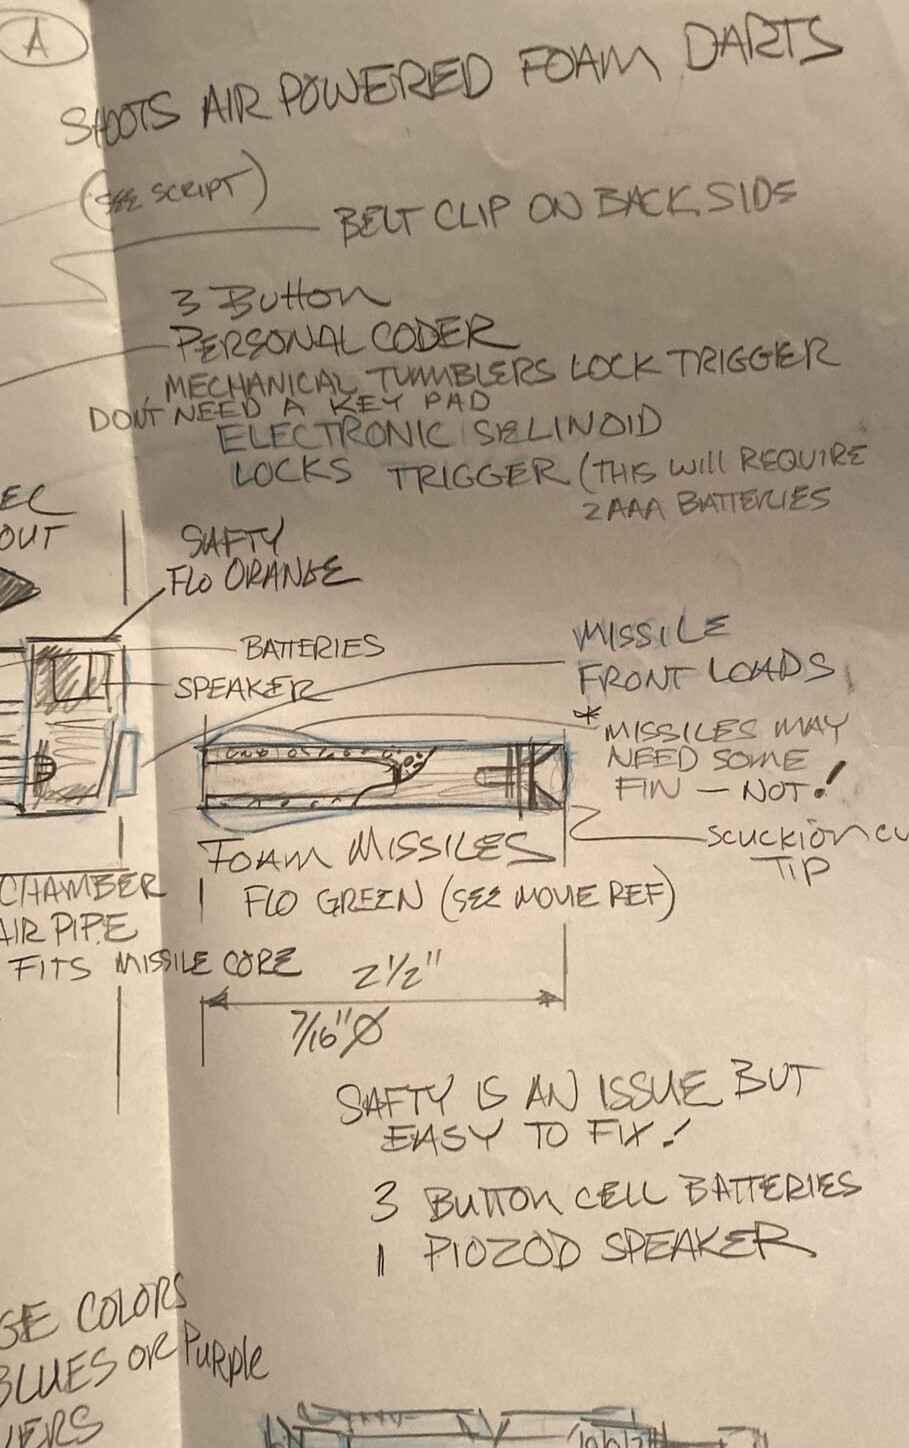 A
SHOOTS AIR POWERED FOAM DARTS
(SEE SCRIPT)
BELT CLIP ON BACK SIDE
3 Button
PERSONAL CODER
MECHANICAL TUMMBLERS LOCK TRIGGER
DON'T NEED A KEY PAD
ELECTRONIC SELINOID
LOCKS TRIGGER (THIS WILL REQUIRE
2 AAA BATTERIES
EC
OUT
SAFTY
FLO ORANGE
BATTERIES
SPEAKER
MISSILE
FRONT LOADS
* MISSILES MAY
NEED SOME
FIN — NOT!
SCUCKION CU
TIP
FOAM MISSILES
FLO GREEN (SEE MOVIE REF)
CHAMBER
AIR PIPE
FITS MISSILE CORE
2 1/2"
7/16" Ø
SAFTY IS AN ISSUE BUT
EASY TO FIX!
3 BUTTON CELL BATTERIES
1 PIOZOD SPEAKER
GE COLORS
BLUES OR Purple
VERS